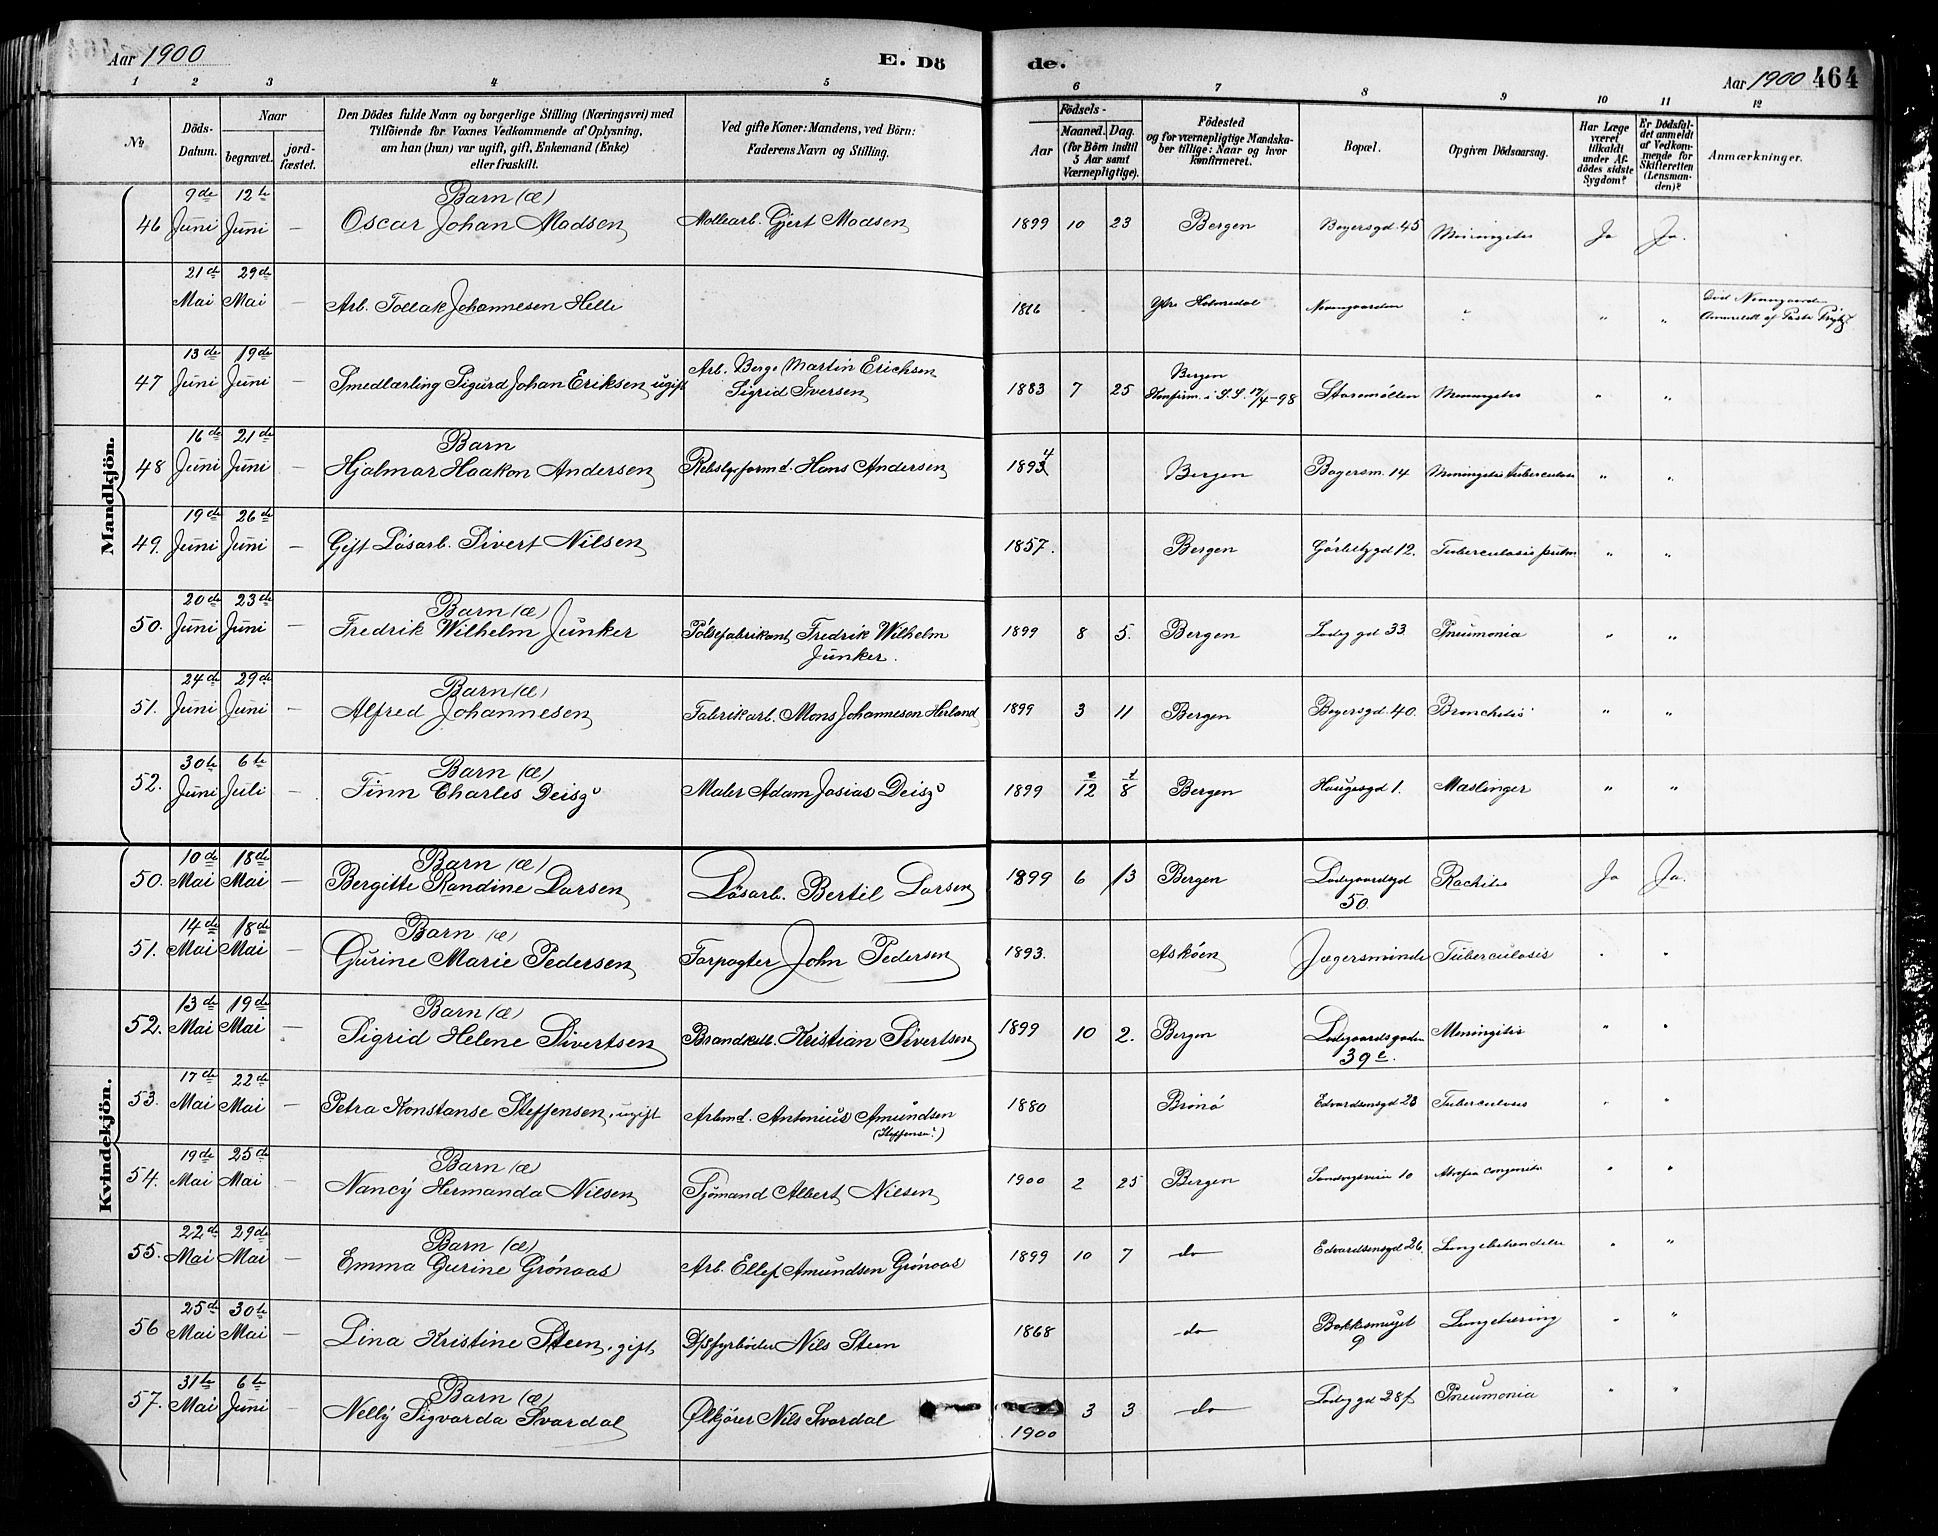 Aar 1900 E. Dö de. Aar 1900 464
1 2 3 4 5 6 7 8 9 10 11 12
No
Döds-Datum.
Naar
begravet.
jord-fæstet.
Den Dödes fulde Navn og borgerlige Stilling (Næringsvei) med
Tilföiende for Voxnes Vedkommende af Oplysning,
om han (hun) var ugift, gift, Enkemand (Enke)
eller fraskilt.
Ved gifte Koner: Mandens, ved Börn:
Faderens Navn og Stilling.
Födsels-
Aar
Maaned. Dag.
(for Börn indtil
5 Aar samt
Værnepligtige).
Födested
og for værnepligtige Mandska-
ber tillige: Naar og hvor
konfirmeret.
Bopæl.
Opgiven Dödsaarsag.
Har Læge
været
tilkaldt
under Af-
dödes sidste
Sygdom?
Er Dödsfal-
det anmeldt
af Vedkom-
mende for
Skifteretten
(Lensman-
den)?
Anmærkninger.
Mandkjön.
46 9de Juni 12te Juni — Barn (æ) Oscar Johan Madsen Mollearb. Gjert Madsen 1899 10 23 Bergen Bøyersgd. 45 Meningitis Ja Ja.
21de Mai 29de Mai — Arb. Tollak Johannesen Helle 1866 Ytre Holmedal Neevengaarden " " " Död Neevengaarden Anmeldt af
47 13de Juni 19de Juni — Smedlærling Sigurd Johan Eriksen ugift Arb. Berge Martin Erichsen Sigrid Iversen 1883 7 25 Bergen Konfirm. i S.S. 17/4-98 Storemøllen Meningitis " "
48 16de Juni 21de Juni — Barn Hjalmar Haakon Andersen Rebslgeformd. Hans Andersen 1894 Bergen Bøyersm. 14 Meningitis Tuberculosis " "
49. 19de Juni 26de Juni — Gift Løsarb. Sivert Nilsen 1857. Bergen 12. Tuberculosis pulm " "
50. 20de Juni 23de Juni — Barn (æ) Fredrik Wilhelm Junker Pölsefabrikant Fredrik Wilhelm Junker. 1899 8 5. Bergen Ladeggd 33. Pneumonia " "
51. 24de Juni 29de Juni — Barn (æ) Alfred Johannesen Fabrikarb. Mons Johannesen Herland 1899 3 11 Bergen Bøyersgd. 40. Bronchitis " "
52. 30te Juni 6te Juli — Barn (æ) Finn Charles Deisz Maler Adam Josias Deisz 1899 12 8 Bergen Haugesgd 1. Mæslinger " "
Kvindekjön.
50. 10de Mai 18de Mai — Barn (æ) Bergitte Randine Larsen Løsarb. Bertil Larsen 1899 6 13 Bergen Ladegaardsgd 50. Rachitis Ja Ja.
51. 14de Mai 18de Mai — Barn (æ) Gurine Marie Pedersen Forpagter John Pedersen 1893. Askøen Jægersminde Tuberculosis " "
52. 13de Mai 19de Mai — Barn (æ) Sigrid Helene Sivertsen Kristian Sivertsen 1899 10 2. Bergen Ladegaardsgaden 39c. Meningitis " "
53. 17de Mai 22de Mai — Petra Konstanse Steffensen, ugift Arbmd. Antonius Amundsen (Steffensen?) 1880 Brönö Edvardsensgd 23 Tuberculosis " "
54. 19de Mai 25de Mai — Barn (æ) Nancy Hermanda Nilsen Sjömand Albert Nilsen 1900 2 25 Bergen Sandvigsveien 10 Atrofia congenita " "
55. 22de Mai 29de Mai — Barn (æ) Emma Gurine Grönaas Arb. Ellef Amundsen Grönaas 1899 10 7 do Edvardsensgd 26. Lungebetændelse " "
56 25de Mai 30te Mai — Lina Kristine Steen, gift D/Sfyrböder Nils Steen 1868 do Bakkesmuget 9 Lungetæring " "
57. 31te Mai 6te Juni — Barn (æ) Nelly Sigvarda Svardal Ølkjører Nils Svardal 1900 3 3 do Ladeggd 28f Pneumonia " "